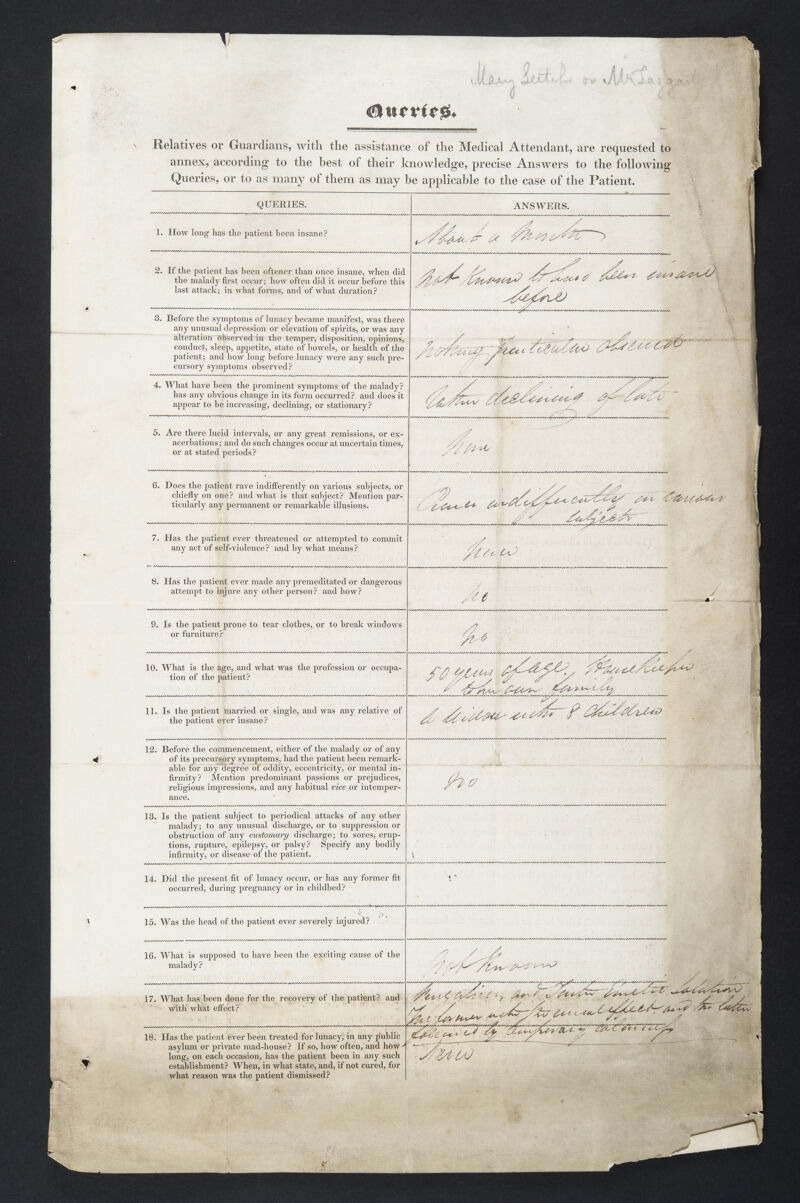 Mary Leitch or McTaggart
Queries.
Relatives or Guardians, with the assistance of the Medical Attendant, are requested to
annex, according to the best of their knowledge, precise Answers to the following
Queries, or to as many of them as may be applicable to the case of the Patient.
QUERIES.
ANSWERS.
1. How long has the patient been insane?
About a Month
2. If the patient has been oftener than once insane, when did
the malady first occur; how often did it occur before this
last attack; in what forms, and of what duration?
Not Known to have been insane
before
3. Before the symptoms of lunacy became manifest, was there
any unusual depression or elevation of spirits, or was any
alteration observed in the temper, disposition, opinions,
conduct, sleep, appetite, state of bowels, or health of the
patient; and how long before lunacy were any such pre-
cursory symptoms observed?
Nothing particular observed
4. What have been the prominent symptoms of the malady?
has any obvious change in its form occurred? and does it
appear to be increasing, declining, or stationary?
Rather declining of late
5. Are there lucid intervals, or any great remissions, or ex-
acerbations; and do such changes occur at uncertain times,
or at stated periods?
None
6. Does the patient rave indifferently on various subjects, or
chiefly on one? and what is that subject? Mention par-
ticularly any permanent or remarkable illusions.
Raves indifferently on various
subjects
7. Has the patient ever threatened or attempted to commit
any act of self-violence? and by what means?
Never
8. Has the patient ever made any premeditated or dangerous
attempt to injure any other person? and how?
No
9. Is the patient prone to tear clothes, or to break windows
or furniture?
No
10. What is the age, and what was the profession or occupa-
tion of the patient?
50 years of age. Housekeeper
to her own family
11. Is the patient married or single, and was any relative of
the patient ever insane?
A Widow with 8 Children
12. Before the commencement, either of the malady or of any
of its precursory symptoms, had the patient been remark-
able for any degree of oddity, eccentricity, or mental in-
firmity? Mention predominant passions or prejudices,
religious impressions, and any habitual vice or intemper-
ance.
No
13. Is the patient subject to periodical attacks of any other
malady; to any unusual discharge, or to suppression or
obstruction of any customary discharge; to sores, erup-
tions, rupture, epilepsy, or palsy? Specify any bodily
infirmity, or disease of the patient.
14. Did the present fit of lunacy occur, or has any former fit
occurred, during pregnancy or in childbed?
15. Was the head of the patient ever severely injured?
16. What is supposed to have been the exciting cause of the
malady?
Not Known
17. What has been done for the recovery of the patient? and
with what effect?
Purgatives, and Tartar Emetic solution
The former with the usual effect and the latter
followed by temporary calmness
18. Has the patient ever been treated for lunacy, in any public
asylum or private mad-house? If so, how often, and how
long, on each occasion, has the patient been in any such
establishment? When, in what state, and, if not cured, for
what reason was the patient dismissed?
Never